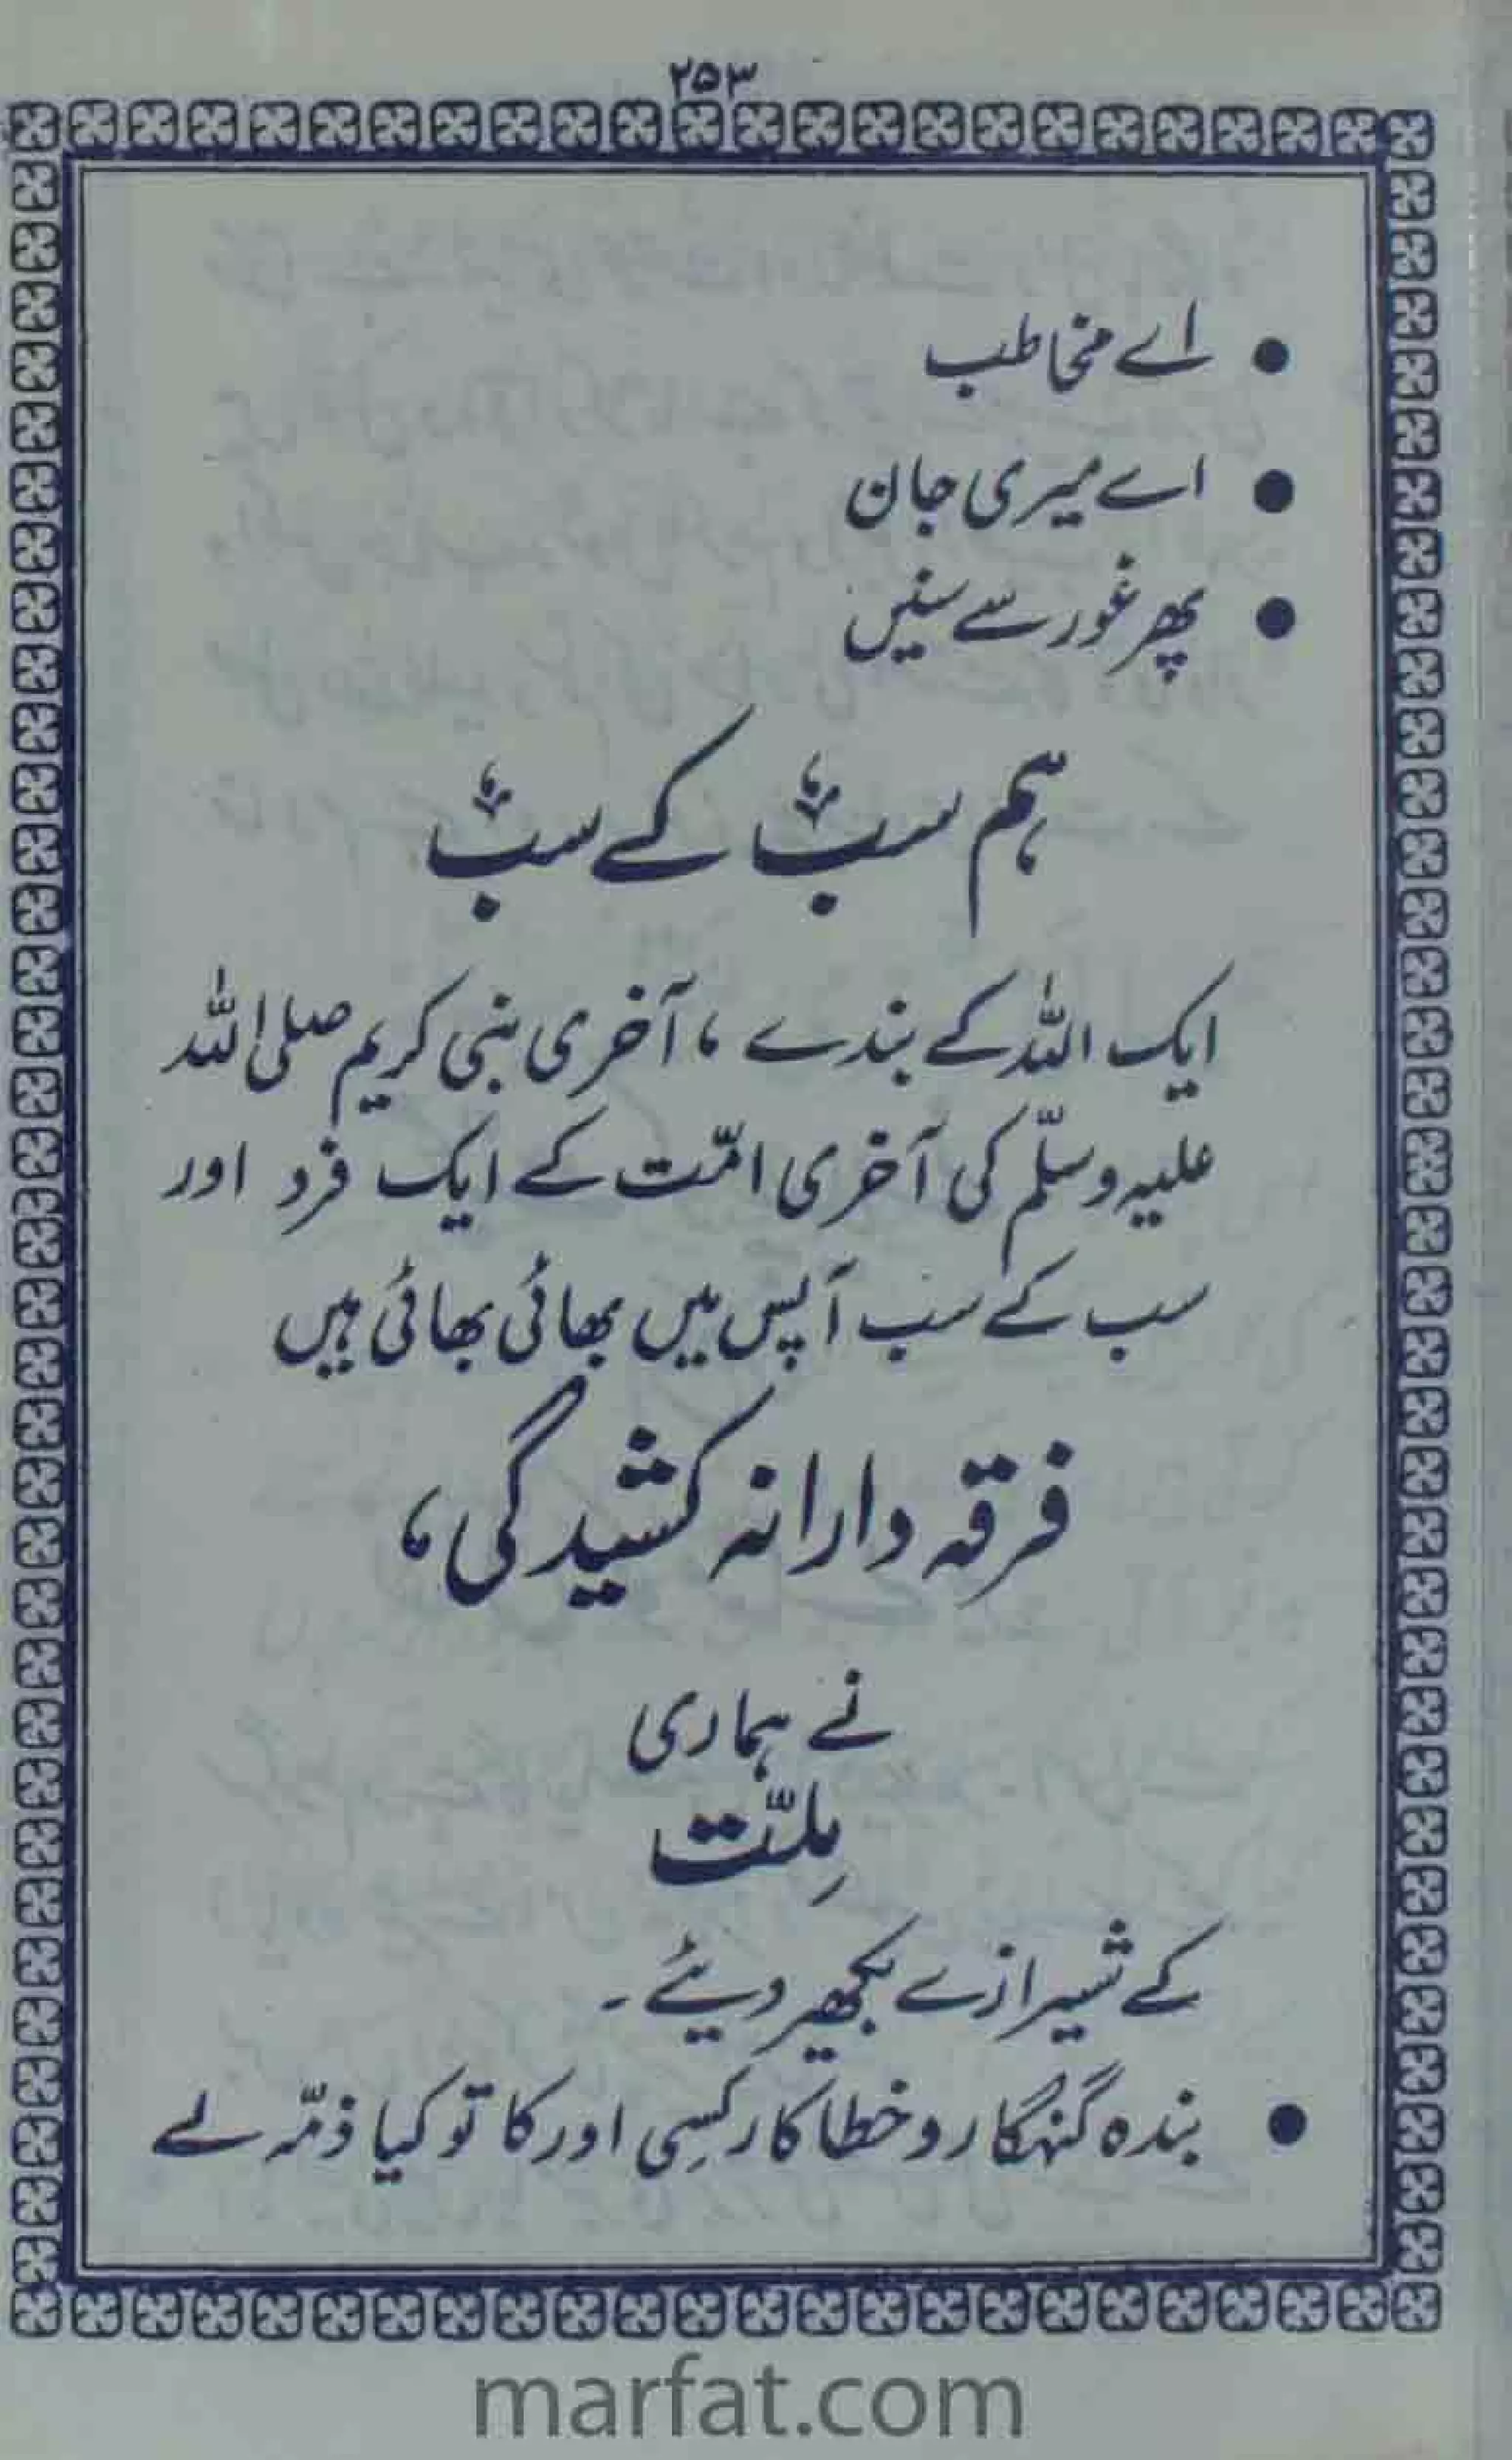 ۲۵۳
● اے مخاطب
● اے میری جان
● پھر غور سے سنیں
ہم سب کے سب
ایک اللہ کے بندے ، آخری نبی کریم صلی اللہ
علیہ وسلّم کی آخری امّت کے ایک فرد اور
سب کے سب آپس میں بھائی بھائی ہیں
فرقہ دارانہ کشیدگی ،
نے ہماری
مِلّت
کے شیرازے بکھیر دیئے ۔
● بندہ گنہگار و خطا کار کسِی اور کا تو کیا ذمّہ لے
marfat.com